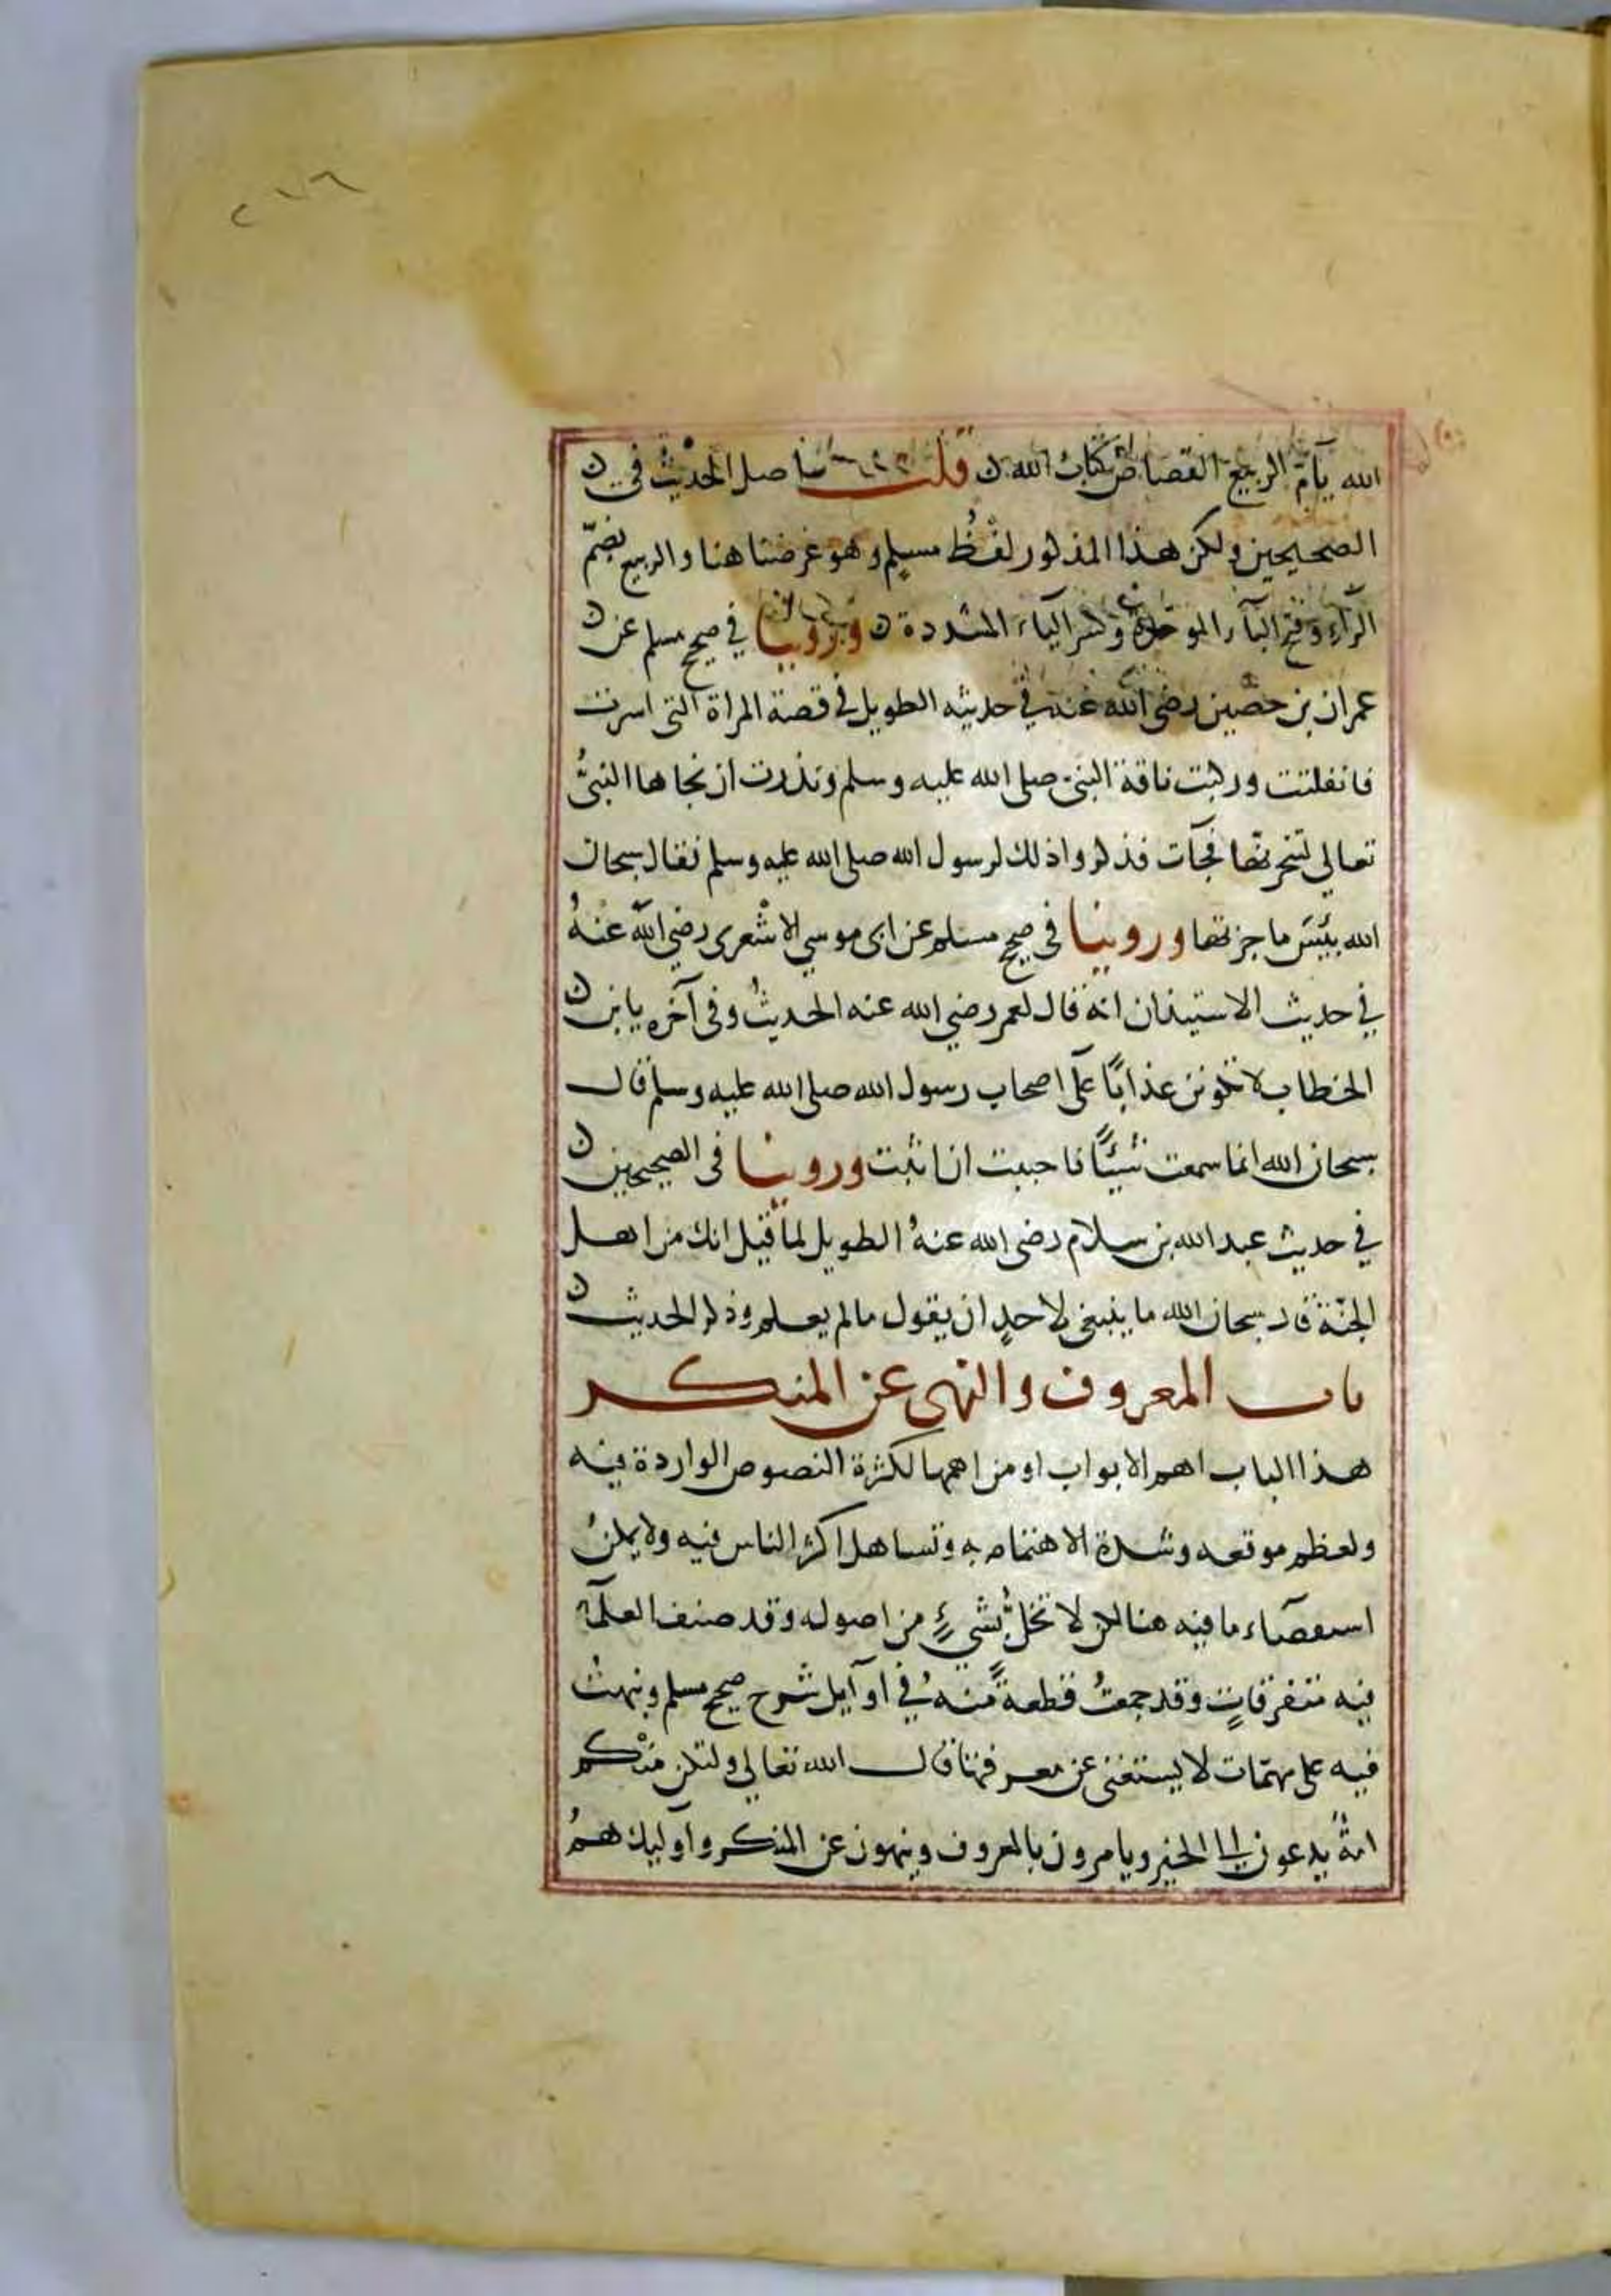 ٢١٦
الله يآمّ الربيع القصاص كتاب الله ن قلت اصل الحديث في ن
الصحيحين ولكن هذا المذكور لفظ مسلم وهو غرضنا هنا والربيع بضمّ
الرّآء وفتح البآء الموحدة وكسر اليآء المشددة ن وروينا في صحيح مسلم عن ن
عمران بن حصين رضي الله عنه في حديثه الطويل في قصة المراة التى اسرت
فانفلتت وركبت ناقة النبى صلى الله عليه وسلم ونذرت ان نجاها النبىُّ
تعالى لتنحرنّها فجآت فذكروا ذلك لرسول الله صلى الله عليه وسلم فقال سبحان
الله بئيس ما جزتها وروينا في صحيح مسلم عن ابى موسي الاشعرى رضي الله عنهُ
في حديث الاستيذان انه قال لعمر رضي الله عنه الحديث وفى آخره يا بن ن
الخطاب لا تكونن عذابًا على اصحاب رسول الله صلى الله عليه وسلم قال
سبحان الله انما سمعت شيئًا فاحببت ان اثبت وروينا في الصحيحين ن
في حديث عبد الله بن سلام رضي الله عنهُ الطويل لما قيل انك من اهل
الجنّة قال سبحان الله ما ينبغى لاحدٍ ان يقول مالم يعلم وذكر الحديث ن
باب المعروف والنهى عن المنكر
هذا الباب اهم الابواب او من اهمها لكثرة النصوص الواردة فيه
ولعظم موقعه وشدة الاهتمام به وتساهل اكثر الناس فيه ولا يمكنُ
استقصآء ما فيه هنا لكن لا تخلُّ بشيءٍ من اصوله وقد صنف العلمآء
فيه متفرقاتٍ وقد جمعتُ قطعةً منهُ في اوآيل شرح صحيح مسلم ونبهتُ
فيه على مهمّات لا يستغنى عن معرفتها قال الله تعالى ولتكن منكم
امةٌ يدعون الى الخير ويامرون بالمعروف وينهون عن المنكر واوليك همُ